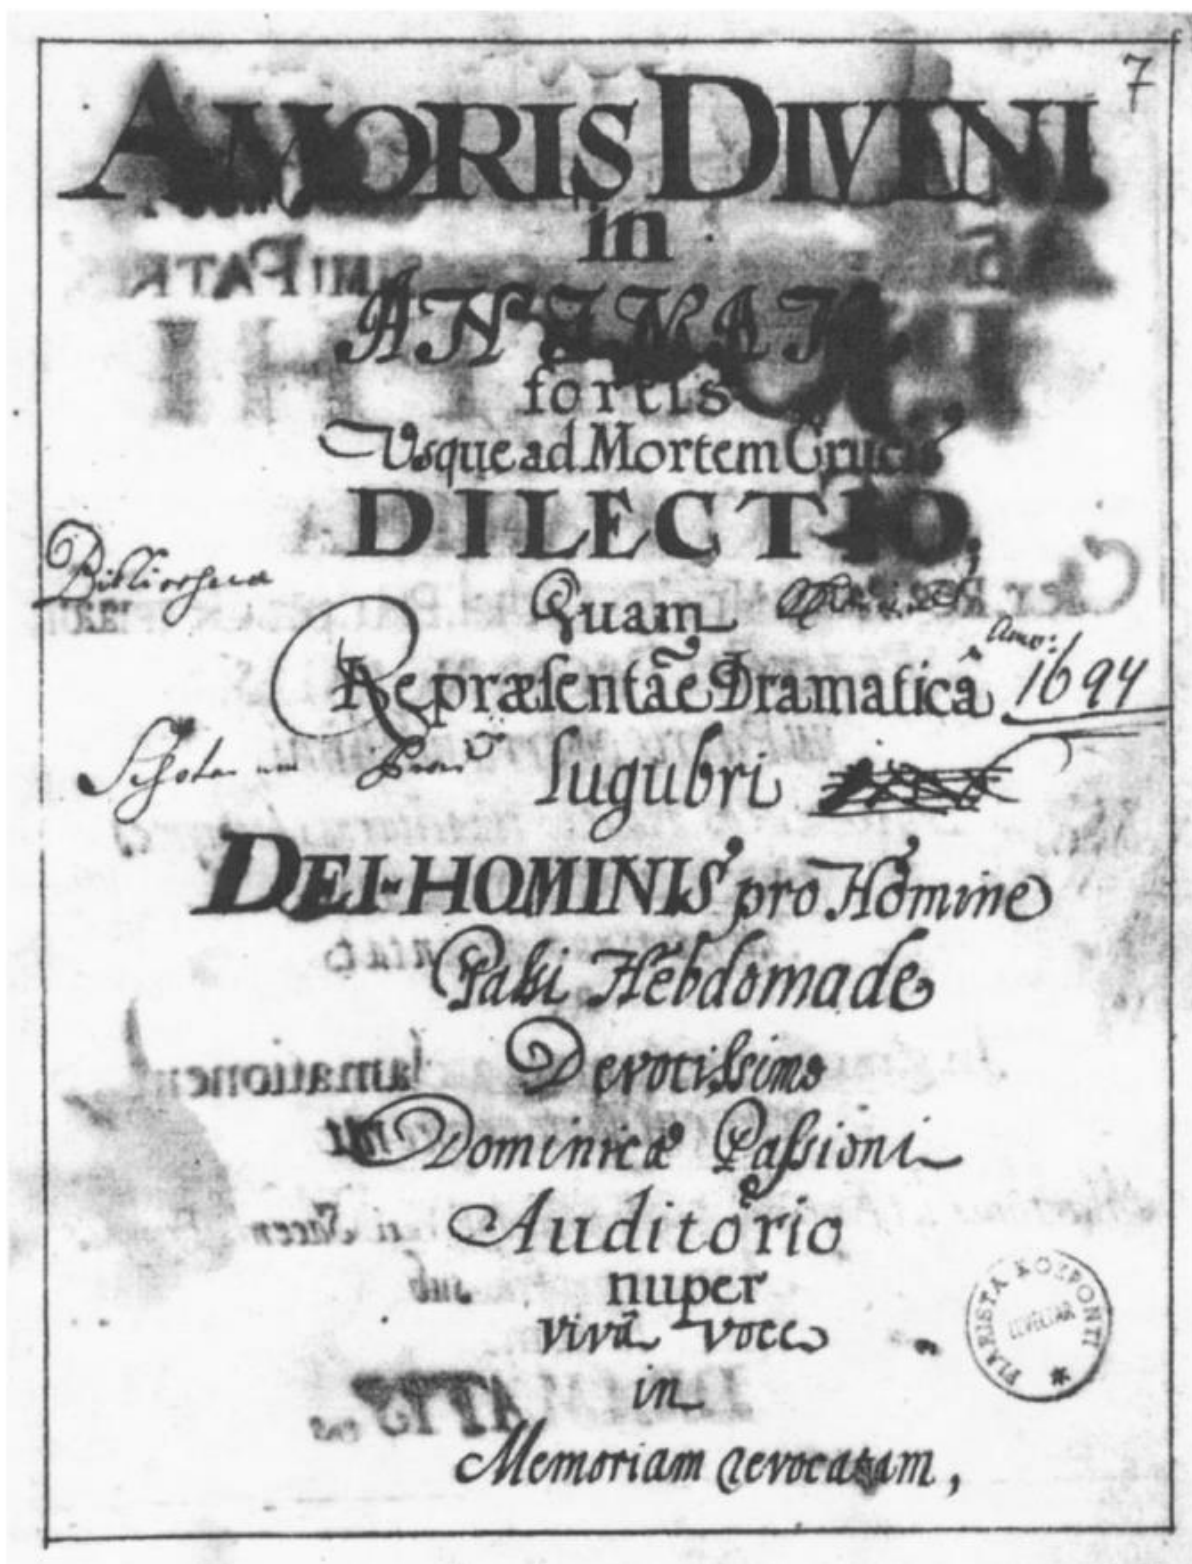 7
AMORIS DIVINI
in
ANIMAM
fortis
Usque ad Mortem Crucis
DILECTIO,
Bibliotheca
Quam
Repræsentãe Dramaticâ
Anno: 1694
Schola
lugubri
DEI-HOMINIS pro Homine
Passi Hebdomade
Devotissimo
Dominicæ Passioni
Auditorio
nuper
vivâ voce
in
Memoriam revocatam,
PIARISTA KÖZPONTI
LEVÉLTÁR